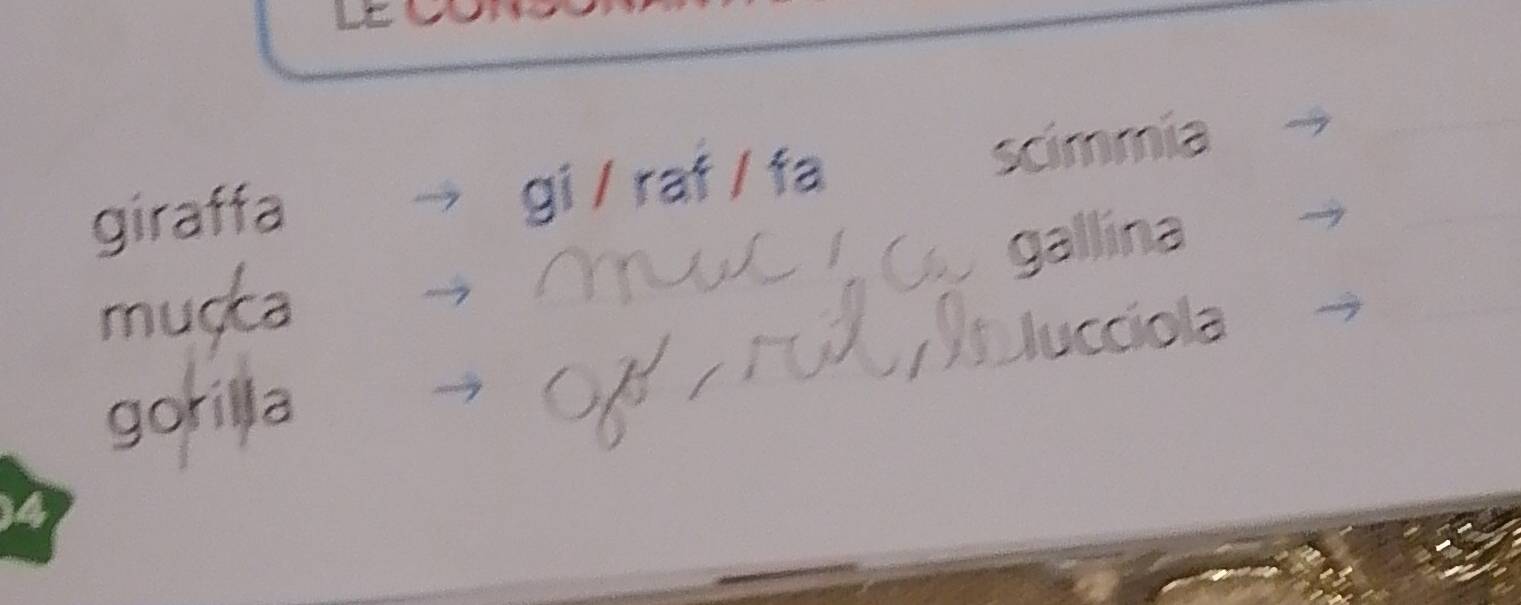 LE
giraffa → gi / raf / fa
mucca → muc / ca
gorilla → go / ril / la
scimmia →
gallina →
lucciola →